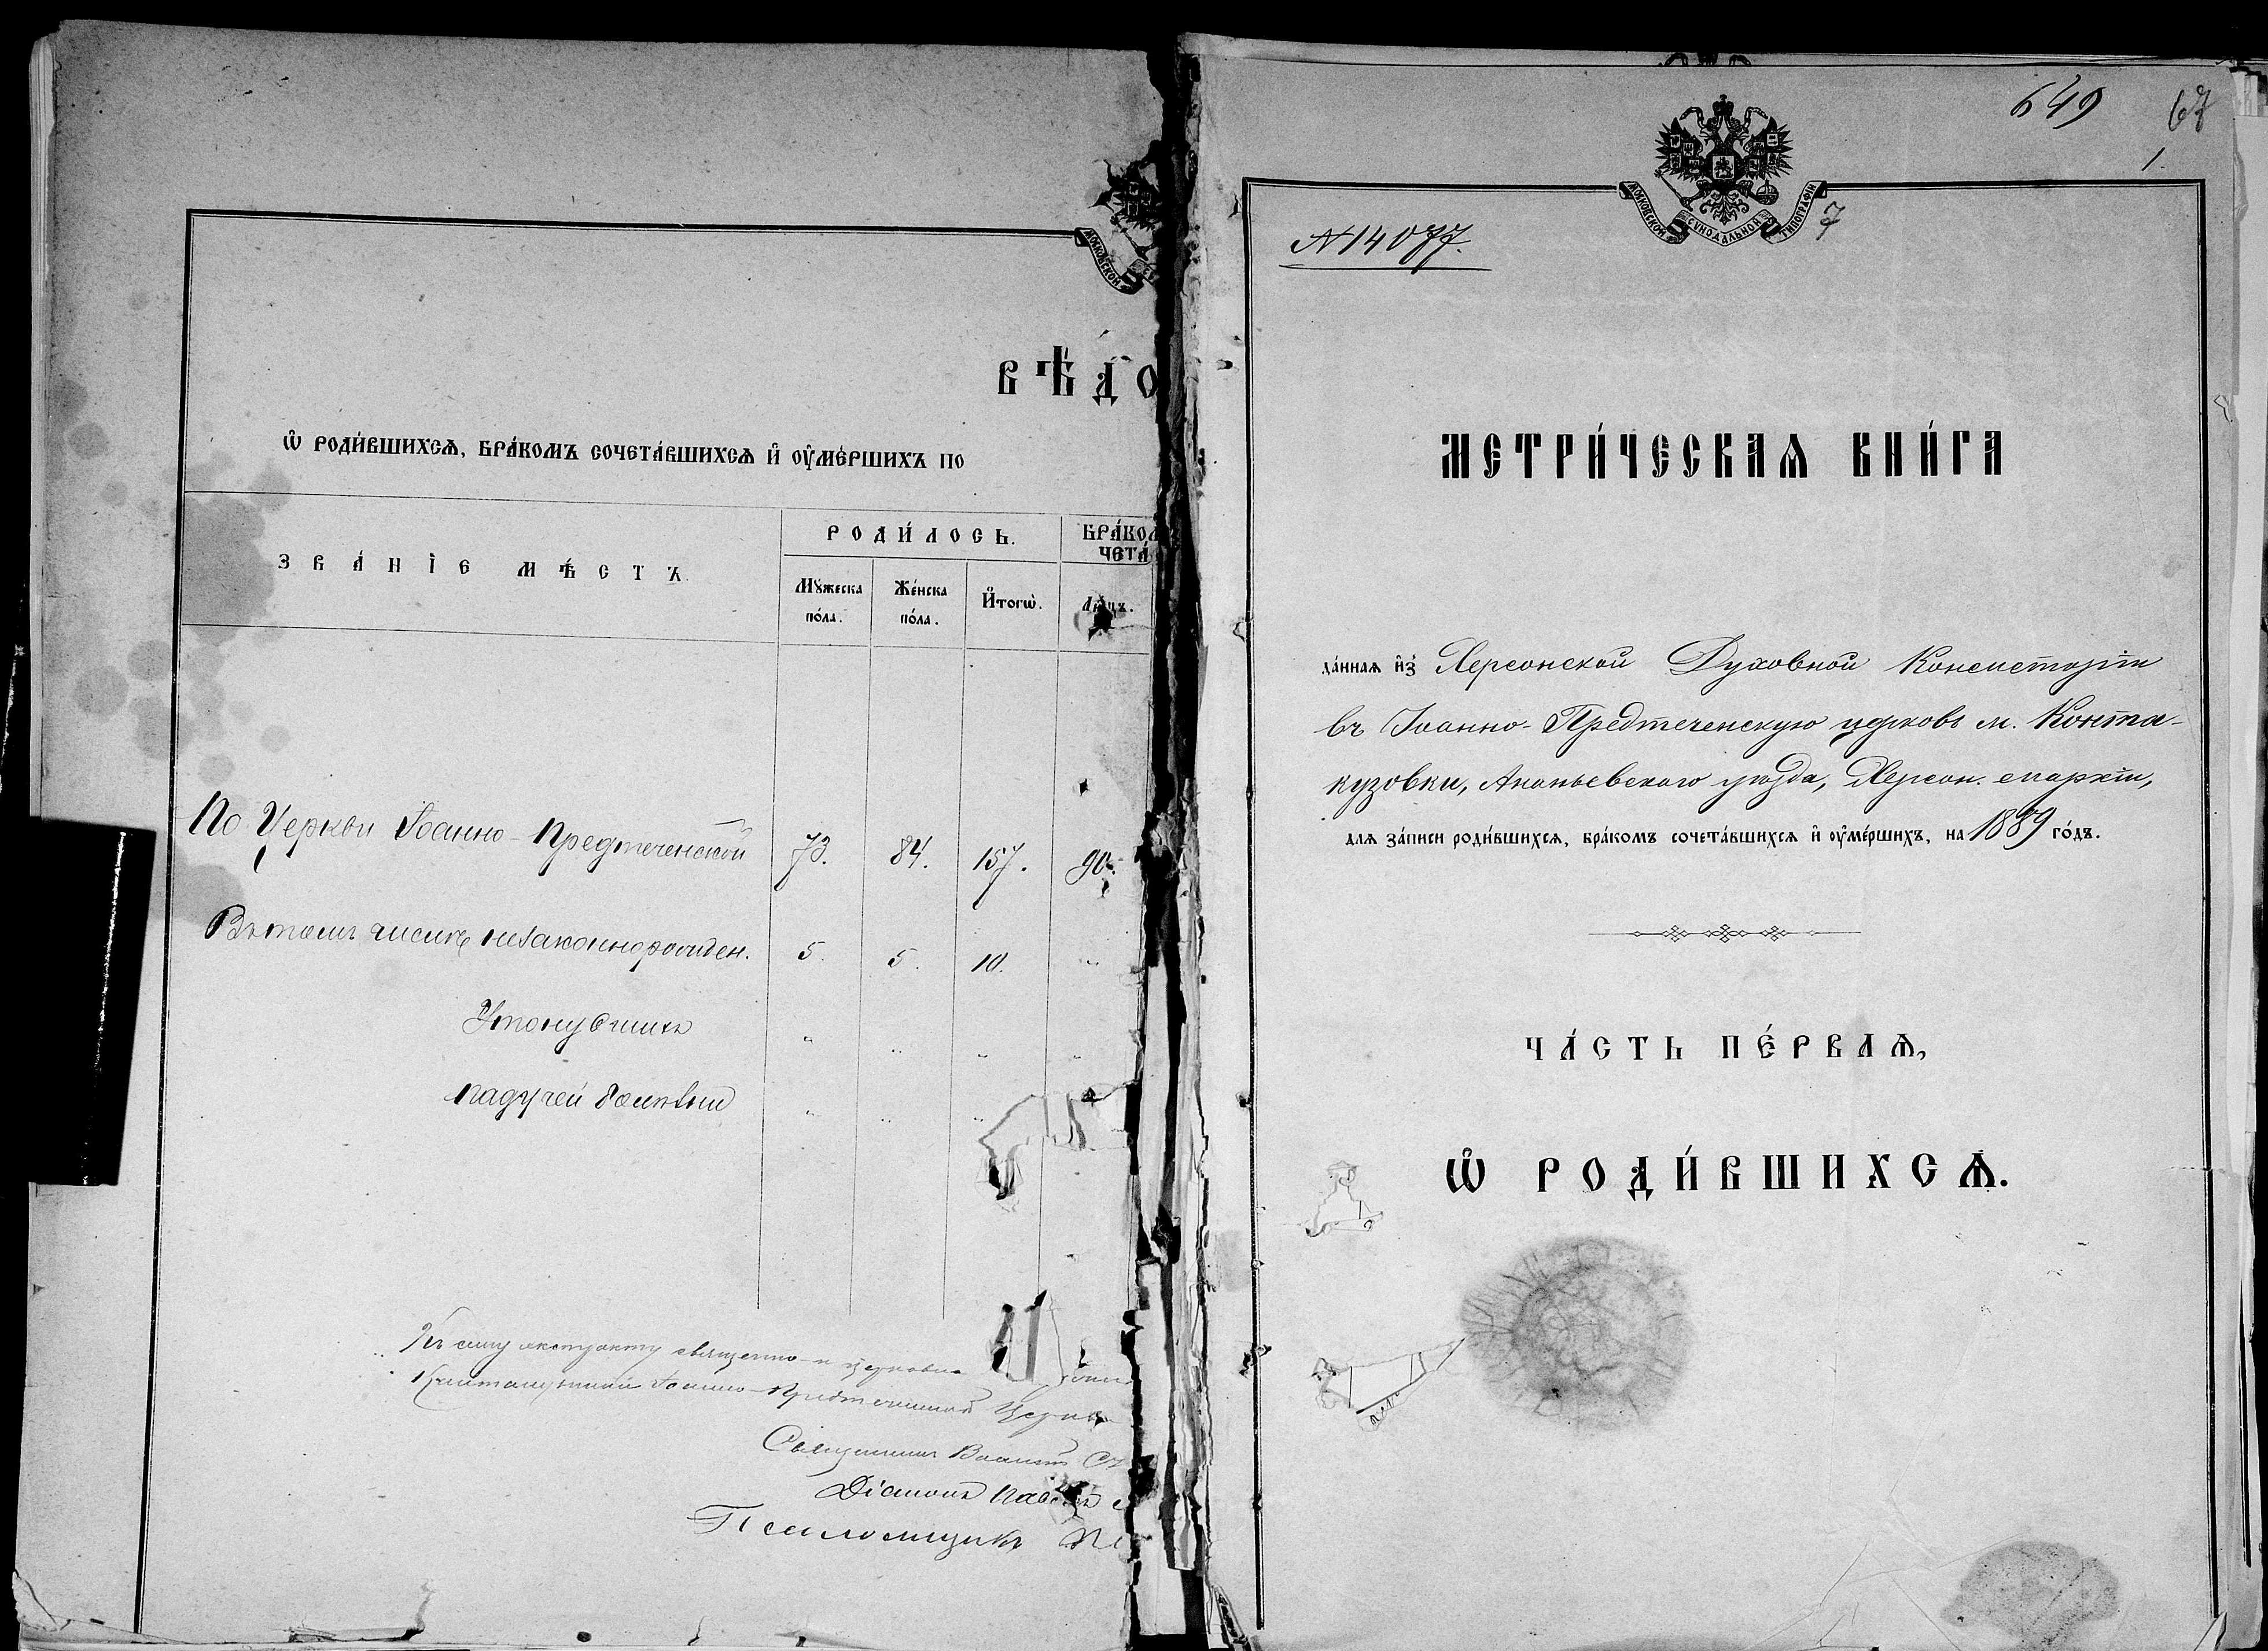 МОСКОВСКОЙ
ВѢ́ДО
Ѡ҆ РОДИ́ВШИХСѦ, БРА́КОМЪ СОЧЕТА́ВШИХСѦ И҆ ОУ҆МЕ́РШИХЪ ПО
ЗВА́НІЕ МѢ́СТЪ.
РОДИ́ЛОСЬ.
БРА́КОМ
ЧЕТА́
Мꙋ́жеска по́ла.
Же́нска по́ла.
И҆тогѡ̀.
Ли́цъ.
По Церкви Іоанно-Предтеченской 73. 84. 157. 90.
Въ томъ числѣ незаконнорожден. 5. 5. 10. „
Утонувшихъ „ „ „ „
падучей болѣзни „ „ „
Къ сему экстракту священно-и церковно
Іоанно-Предтеченской Церкви
Священникъ
Діаконъ Павелъ
Псаломщикъ
649 67
1.
МОСКОВСКОЙ СѴНОДАЛЬНОЙ ТИПОГРАФІИ
7
№14077.
МЕТРИ́ЧЕСКАѦ КНИ́ГА
да́ннаѧ и҆з̾ Херсонской Духовной Консисторіи
въ Іоанно-Предтеченскую церковь м. Конта-
кузовки, Ананьевскаго уѣзда, Херсон. епархіи,
длѧ за́писи роди́вшихсѧ, бра́комъ сочета́вшихсѧ и҆ оу҆ме́ршихъ, на 1889 го́дъ.
ЧА́СТЬ ПЕ́РВАѦ,
Ѡ҆ РОДИ́ВШИХСѦ.